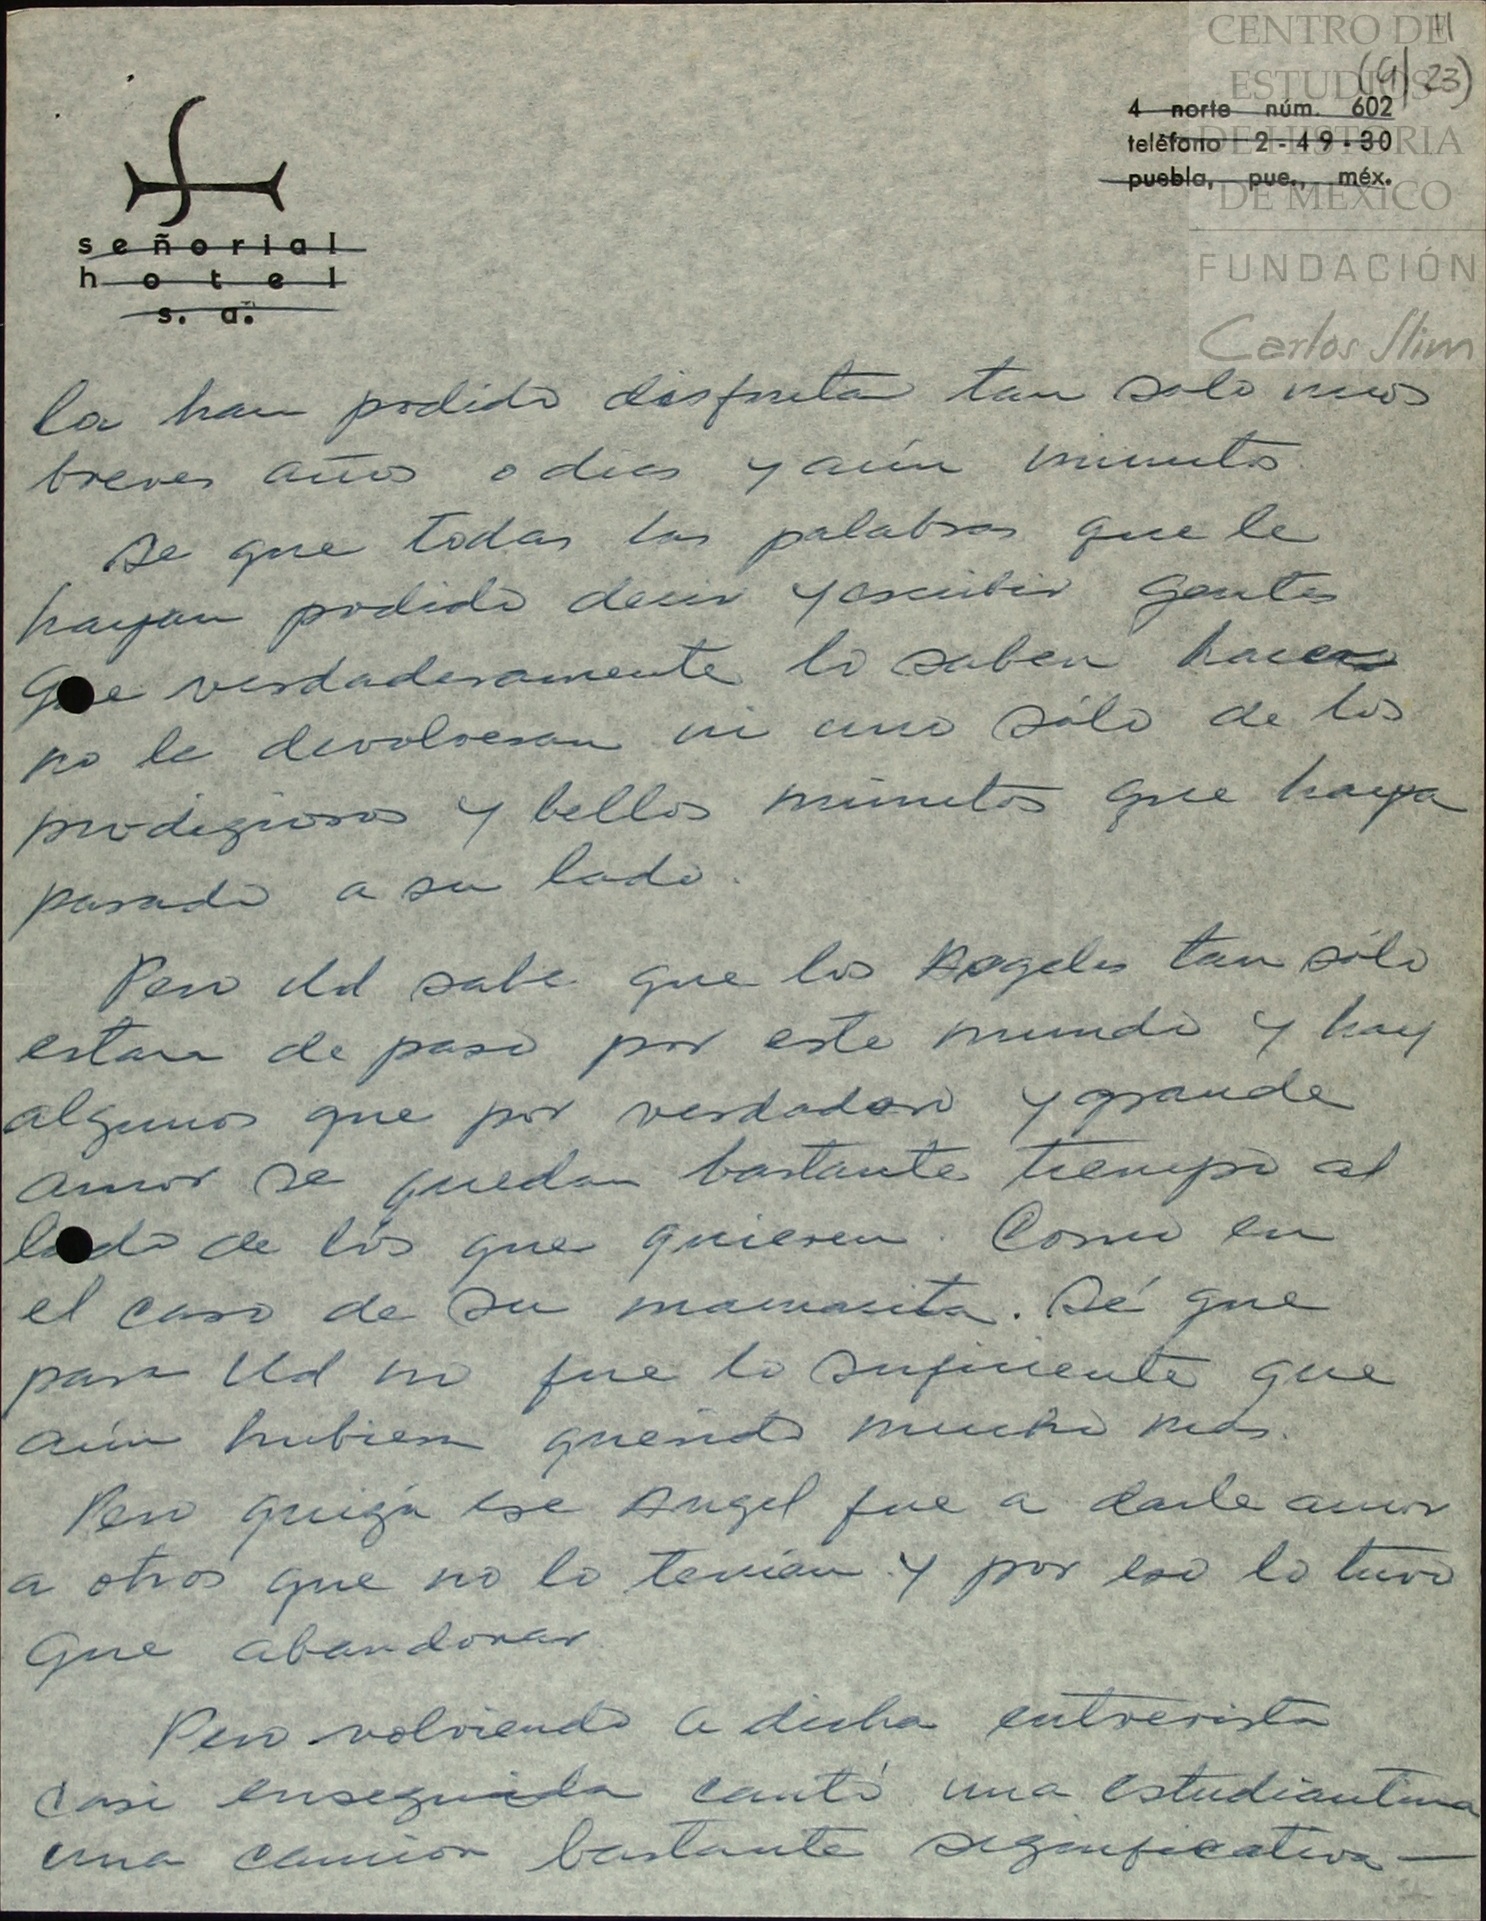 11
(9/23)
CENTRO DE
ESTUDIOS
DE HISTORIA
DE MÉXICO
FUNDACIÓN
Carlos Slim
4 norte núm. 602
teléfono 2-49-30
puebla, pue., méx.
señorial
hotel
s. a.
la han podido disfrutar tan solo unos
breves años o dias y aún minutos.
Se que todas las palabras que le
hayan podido decir y escribir gentes
que verdaderamente lo saben hacer
no le devolveran ni uno sólo de los
prodigiosos y bellos minutos que haya
pasado a su lado.
Pero Ud sabe que los Angeles tan sólo
estan de paso por este mundo y hay
algunos que por verdadero y grande
amor se quedan bastante tiempo al
lado de lós que quieren. Como en
el caso de su mamasita. Sé que
para Ud no fue lo suficiente que
aún hubiera querido mucho mas.
Pero quizá ese Angel fue a darle amor
a otros que no lo tenían y por eso lo tuvo
que abandonar.
Pero volviendo a dicha entrevista
casi enseguida cantó una estudiantina
una cancion bastante significativa—